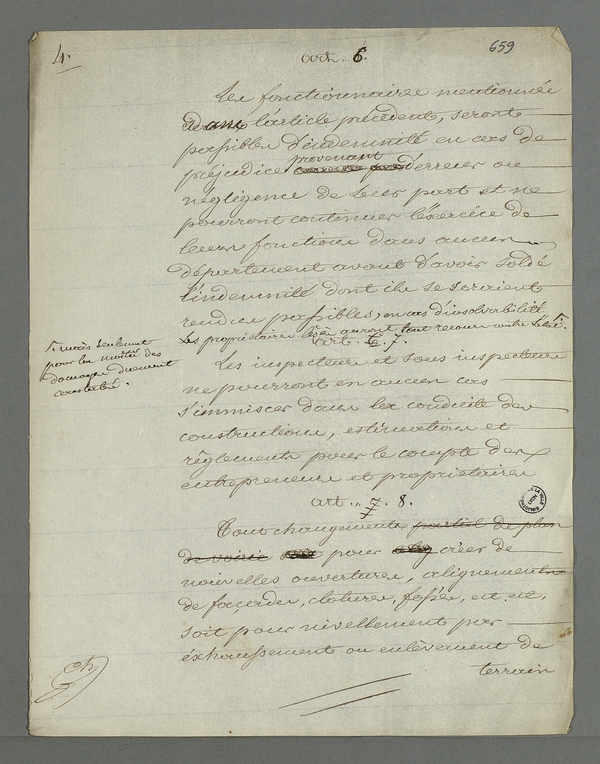 4.
659
art. 6.
Les fonctionnaires mentionnés
dans l'article précédent, seront
passibles d'indemnité en cas de
préjudice provenant d'erreurs ou
négligence de leur part et ne
pourront continuer l'éxercice de
leurs fonctions dans aucun
département avant d'avoir soldé
l'indemnité dont ils se seroient
rendus passibles, en cas d'insolvabilité
Les propriétaires lésés auront tout recours contre l'état.
mais seulement
pour la moitié des
domages duement
constatés.
art. 6. 7.
Les inspecteurs et sous inspecteurs
ne pourront en aucun cas
s'immiscer dans la conduite des
constructions, estimations et
règlements pour le compte des
entrepreneurs et propriétaires
art. 7. 8.
Tout changements partiel de plan
de voirie soit pour créer de
nouvelles ouvertures, alignements
de façades, clotures, fossés, etc. etc.
soit pour nivellement par
éxhaussement ou enlèvement de
terrain